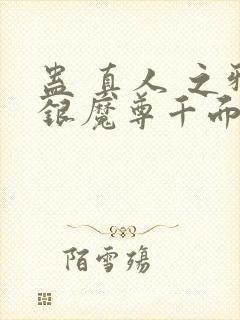 蛊真人之邪
银魔尊千而
陌雪殇